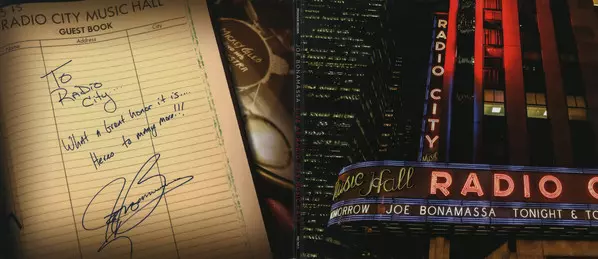 IS
RADIO CITY MUSIC HALL
GUEST BOOK
Name
Address
City
To
Radio
City...
What a great honor it is....
Heres to many more!!!
JOE BONAMASSA
RADIO CITY
Music
Music Hall RADIO C
OMORROW JOE BONAMASSA TONIGHT & TO